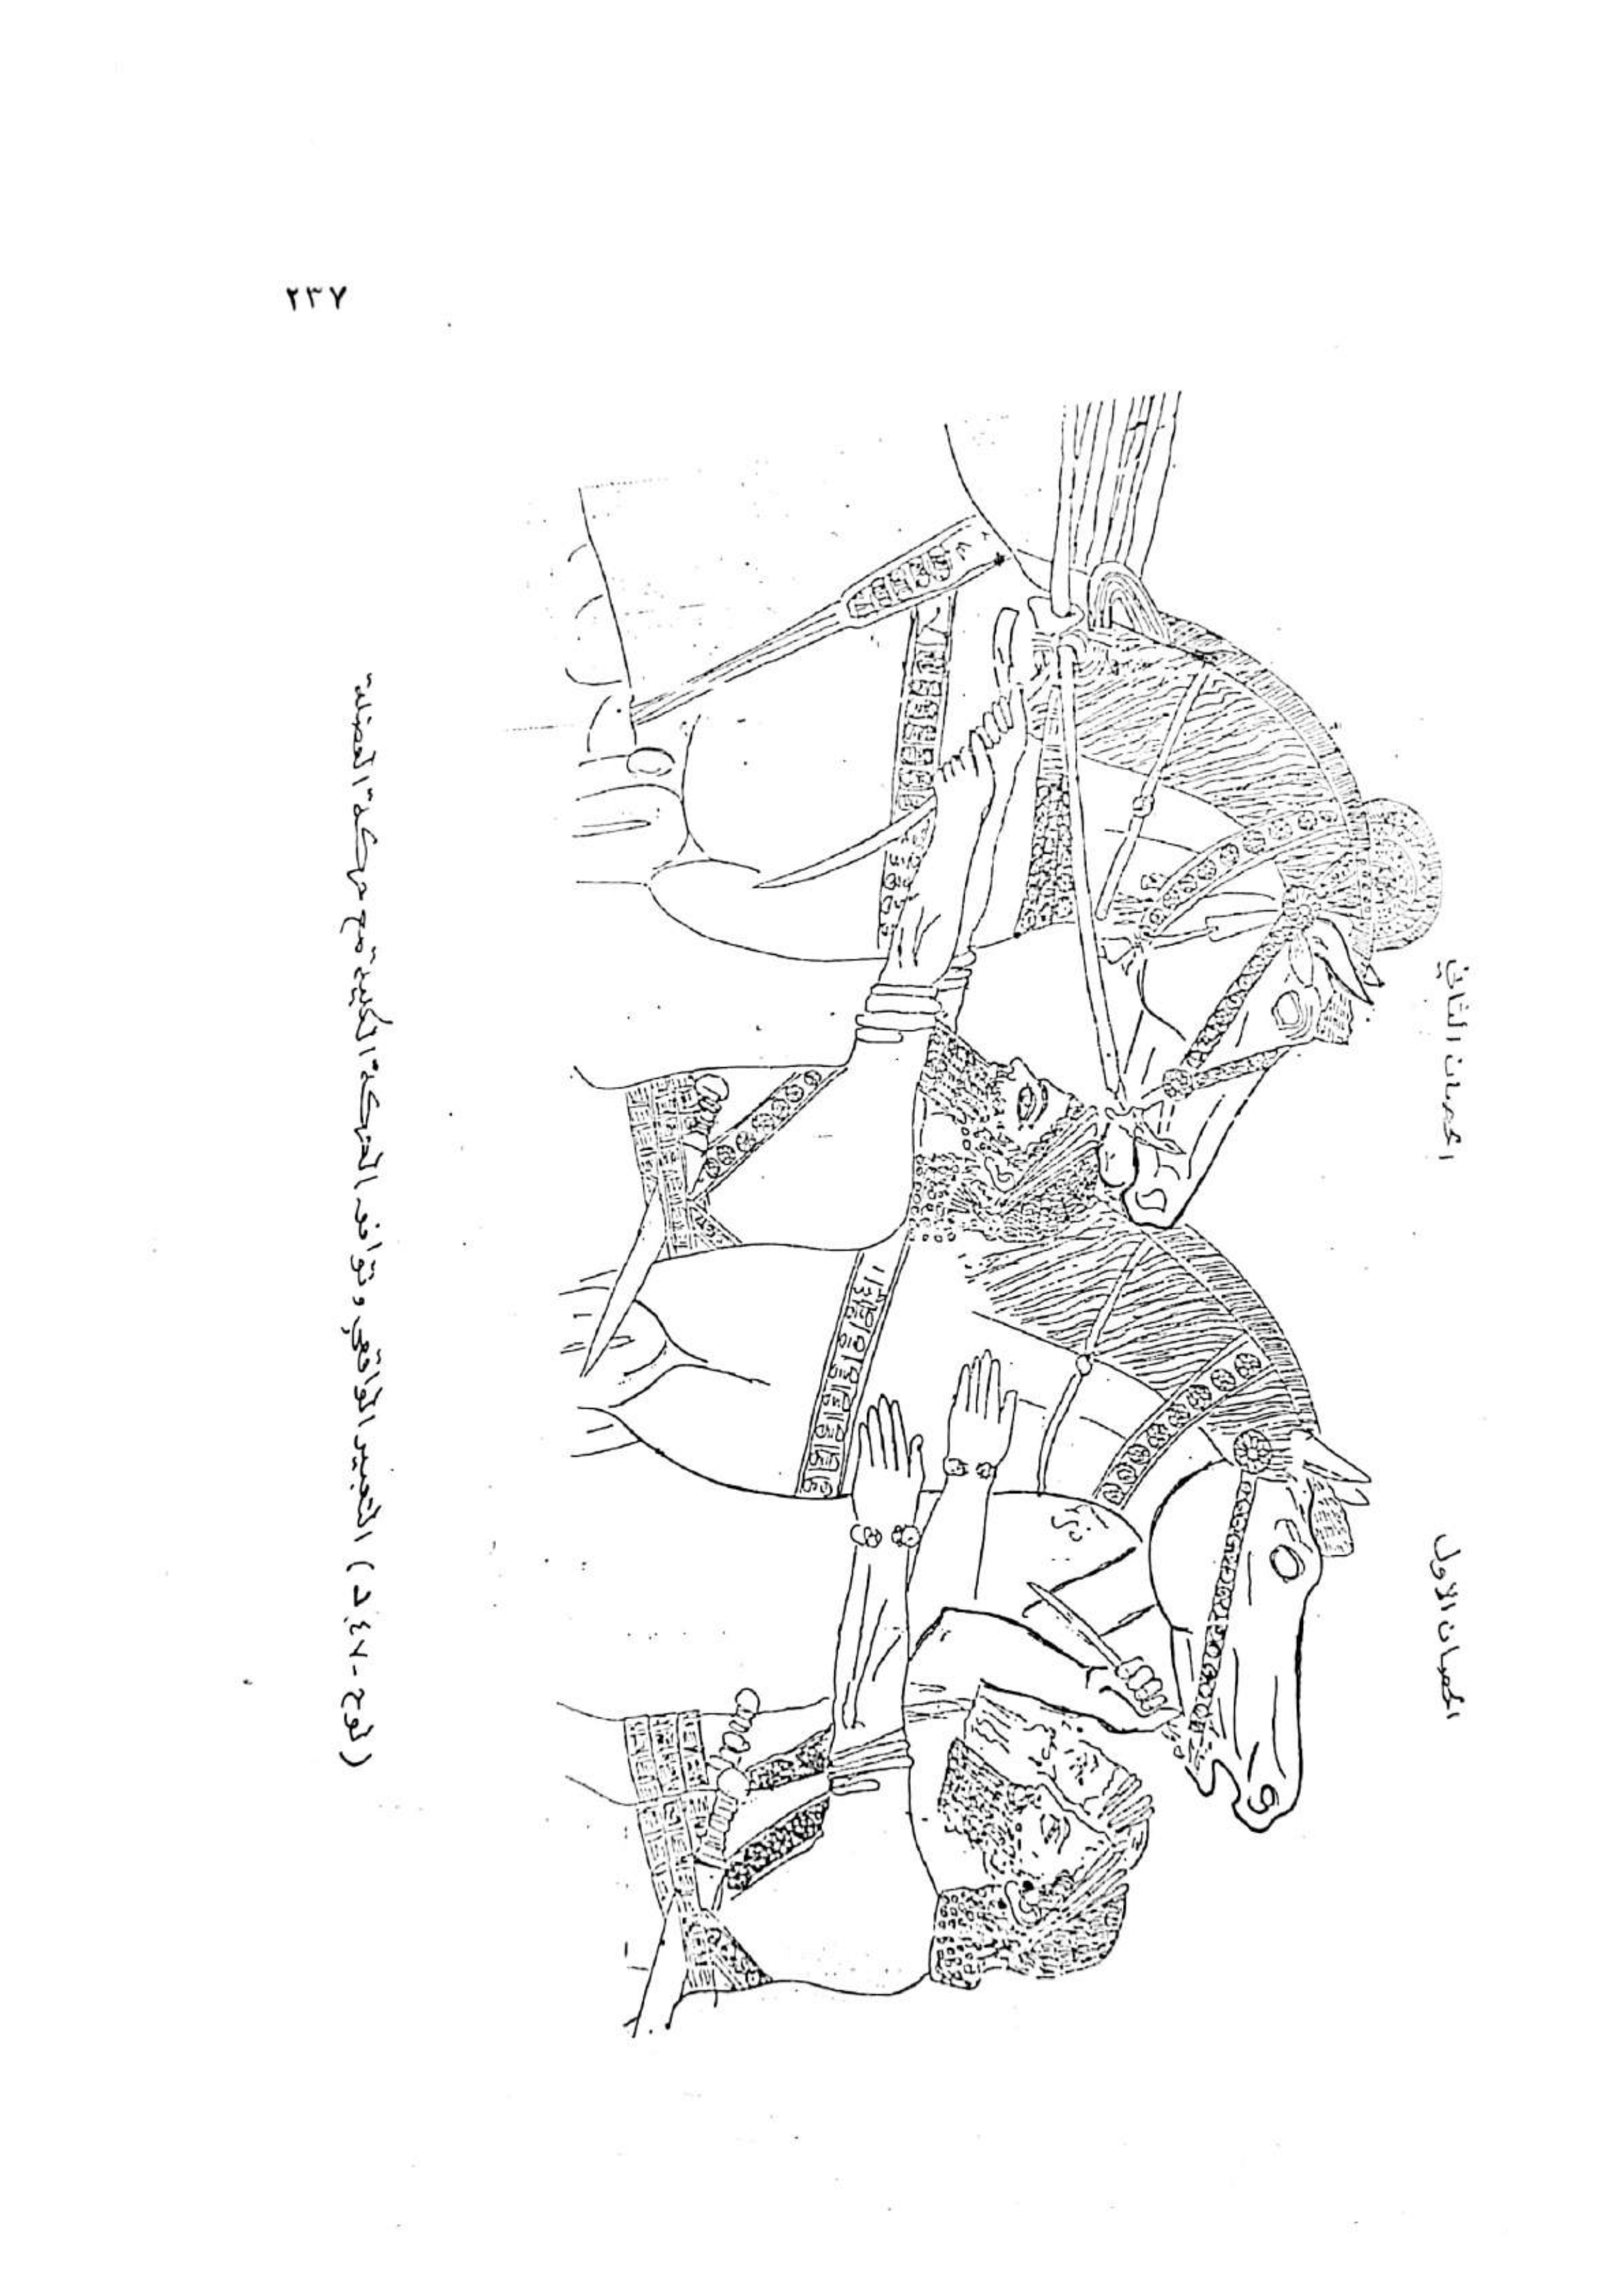 ٢٣٧
الحصان الثاني
الحصان الاول
(لوح - ٤٧ د) التعبير الواقعي وتوافر الحركة الكلية مع حركة العضلة